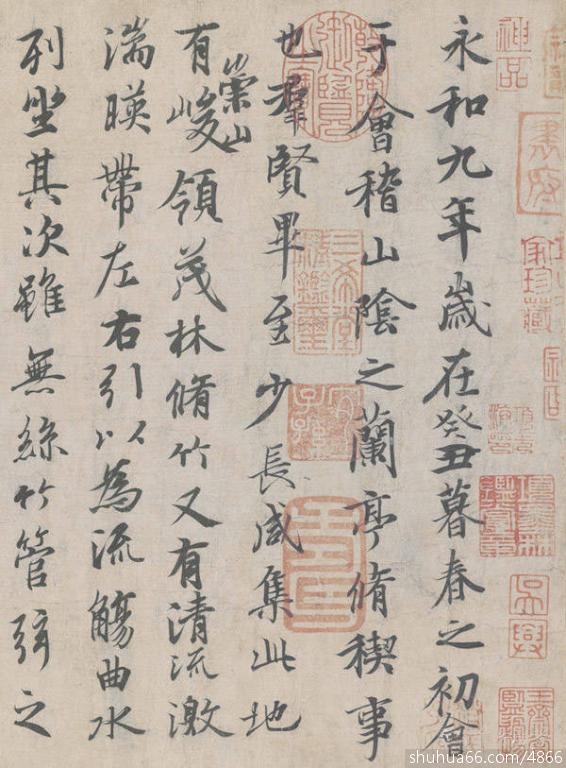 永和九年歲在癸丑暮春之初會
于會稽山陰之蘭亭脩稧事
也羣賢畢至少長咸集此地
有崇山峻領茂林脩竹又有清流激
湍暎帶左右引以為流觴曲水
列坐其次雖無絲竹管弦之
神品
家珍藏
三希堂精鑑璽
宜子孫
shuhua66.com/4866